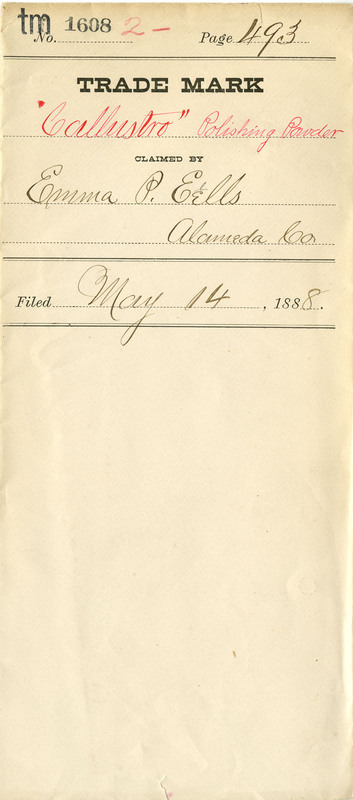 tm No. 1608 2- Page 493
TRADE MARK
"Callustro" Polishing Powder
CLAIMED BY
Emma P. Eells
Alameda Co
Filed May 14, 1888.